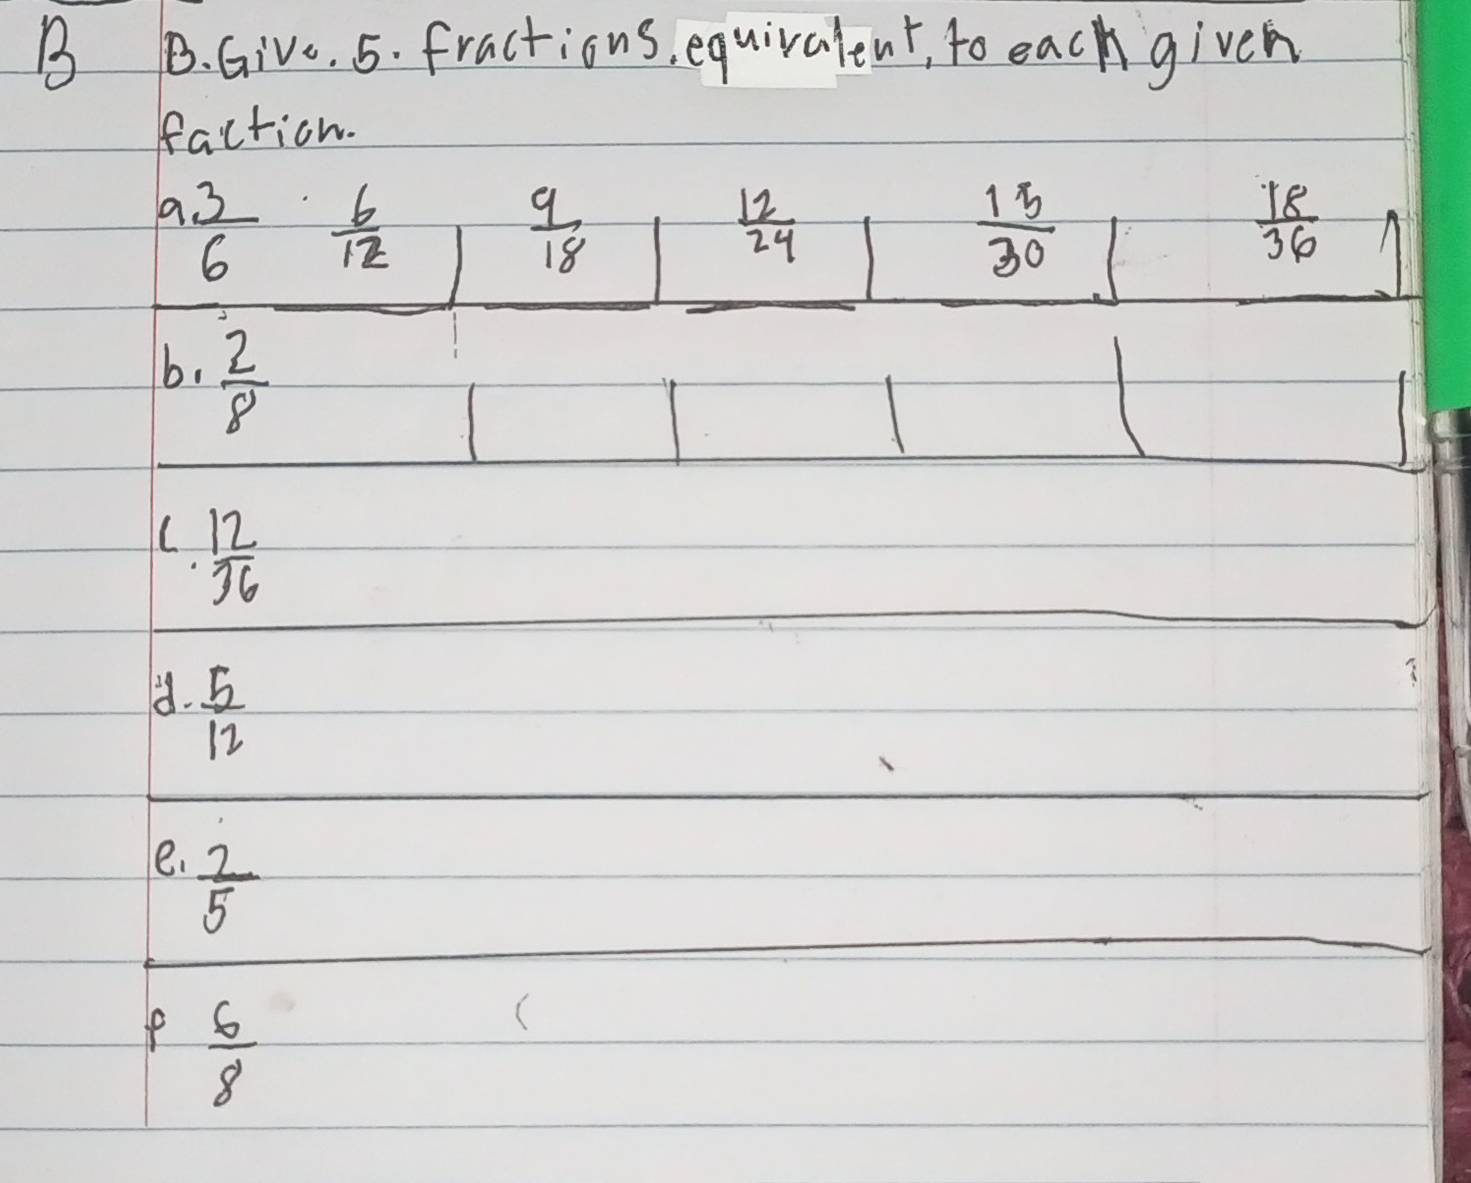 B B. Give. 5. fractions. equivalent, to each given
faction.
a. 3/6 6/12 9/18 12/24 15/30 18/36
b. 2/8
c. 12/36
d. 5/12
e. 2/5
f 6/8